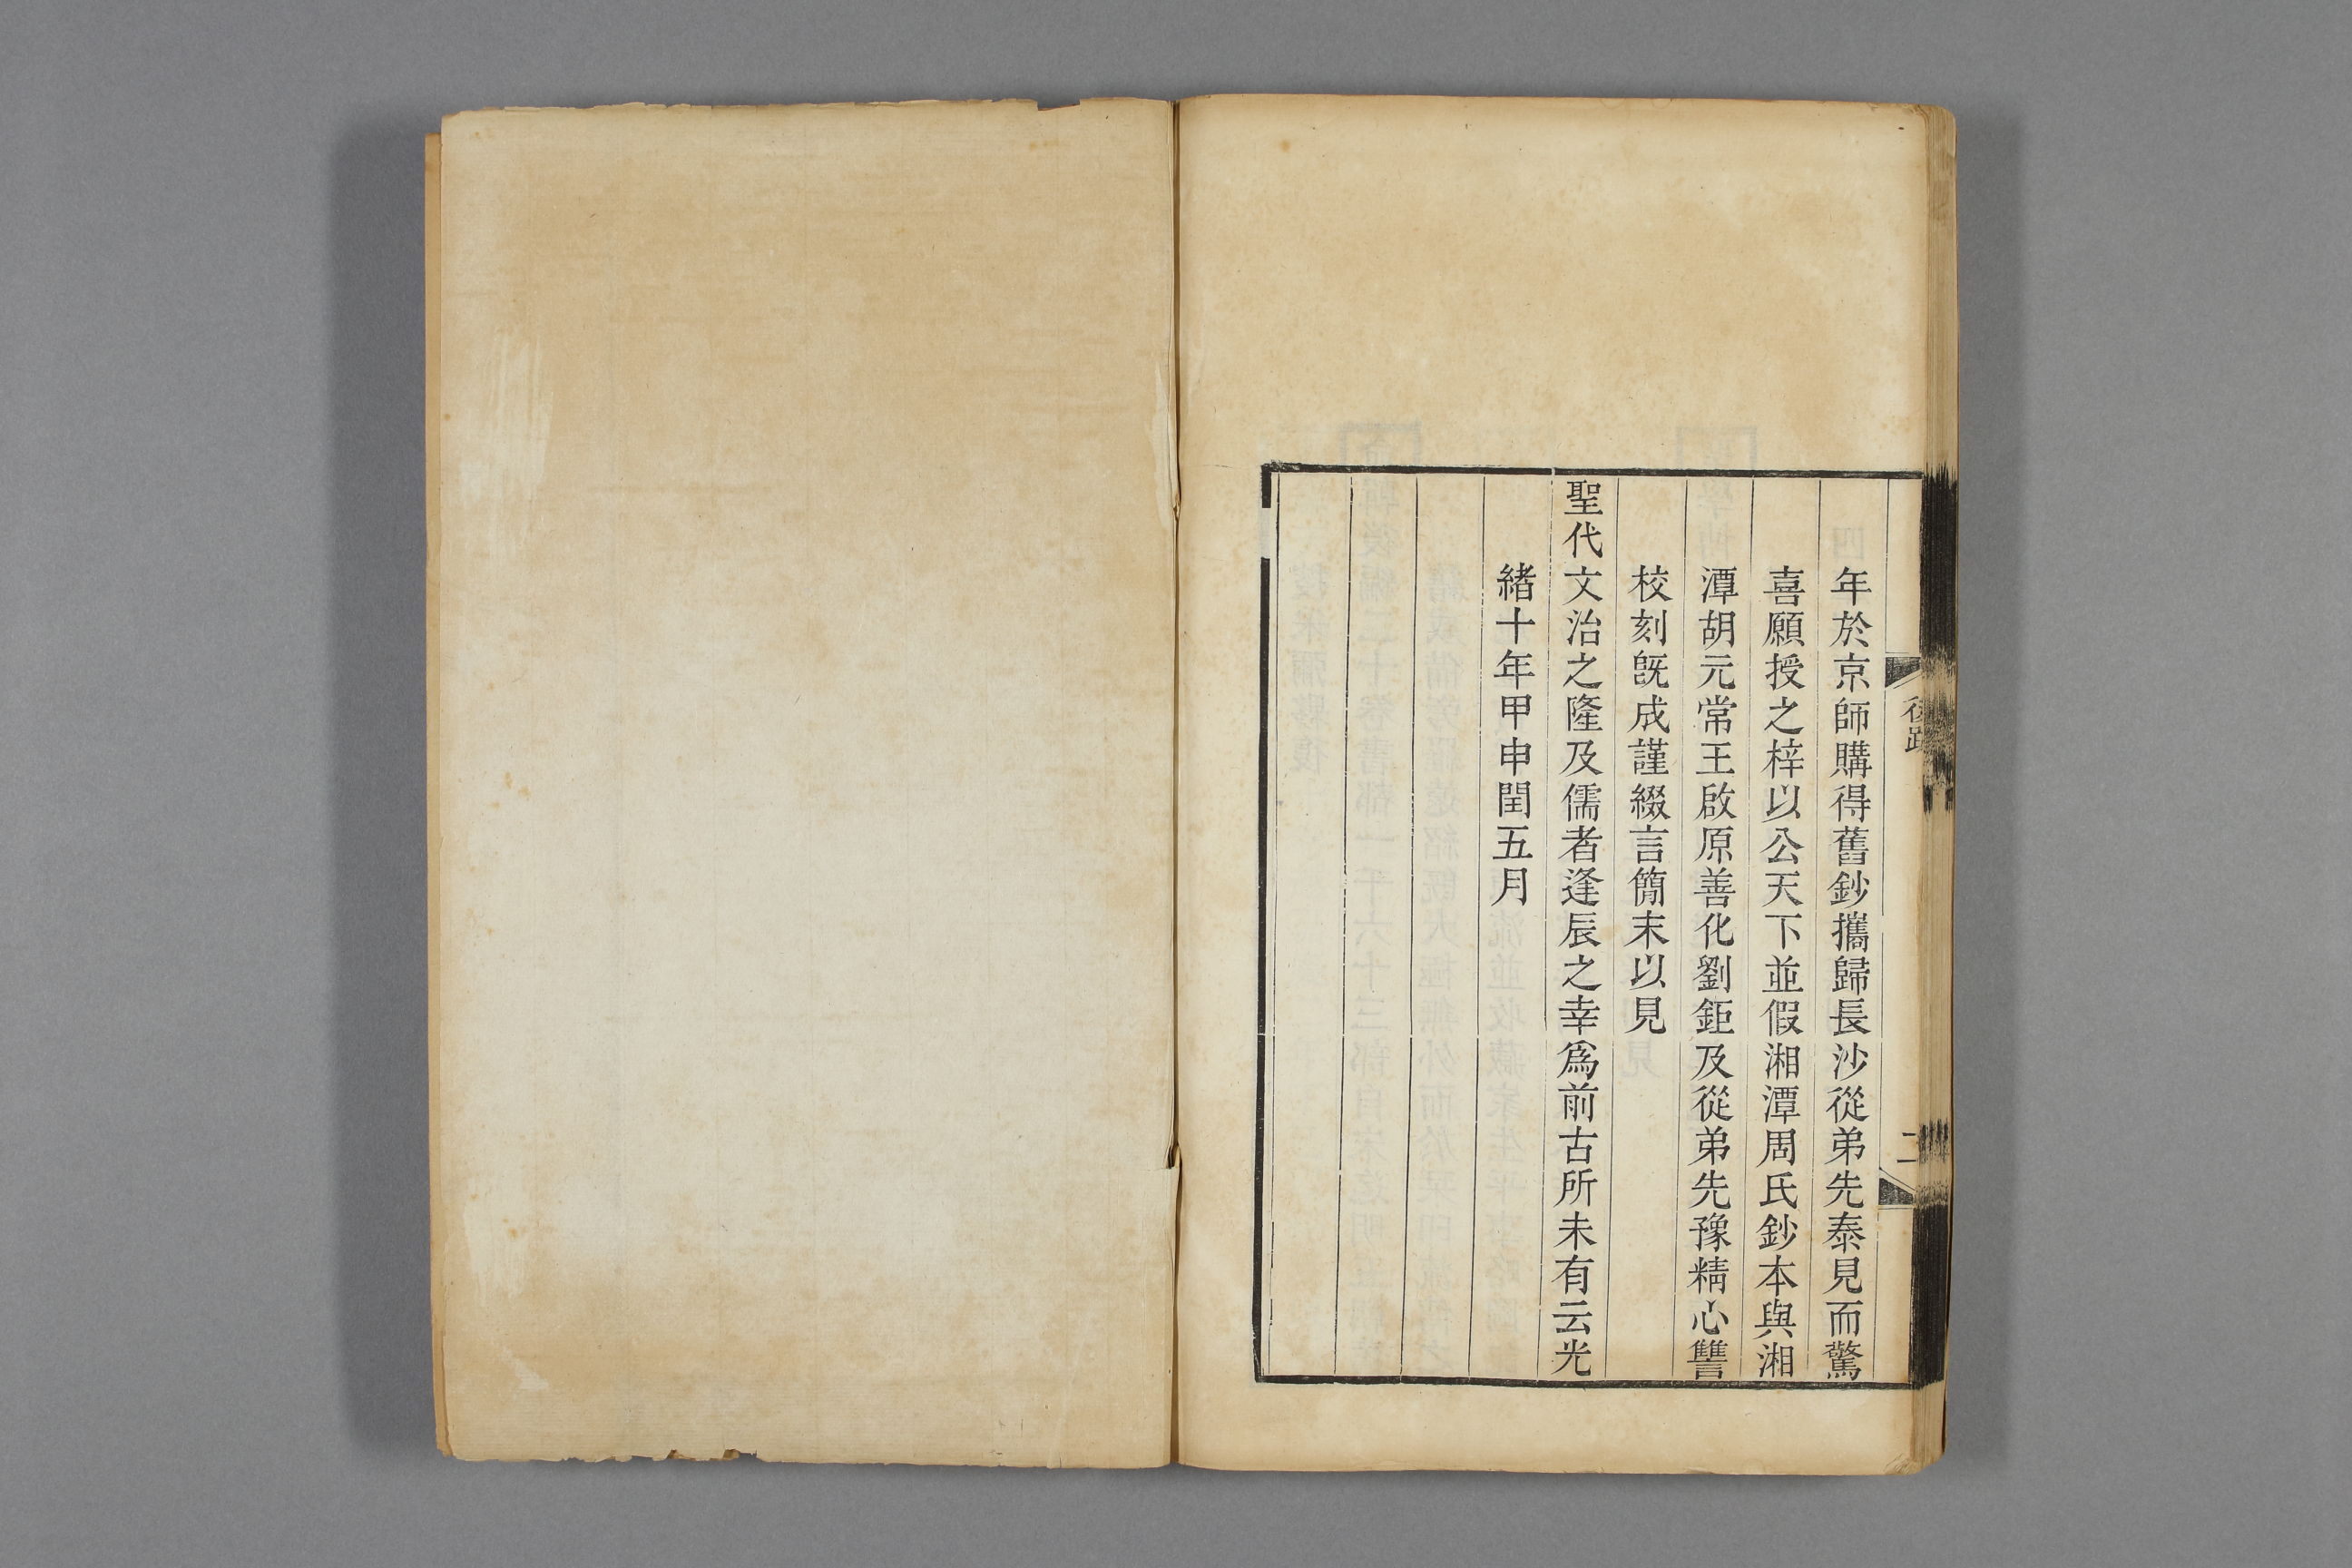 年於京師購得舊鈔攜歸長沙從弟先泰見而驚
喜願授之梓以公天下並假湘潭周氏鈔本與湘
潭胡元常王啟原善化劉鉅及從弟先豫精心讐
校刻旣成謹綴言簡末以見
聖代文治之隆及儒者逢辰之幸爲前古所未有云光
緒十年甲申閏五月
後跋
二